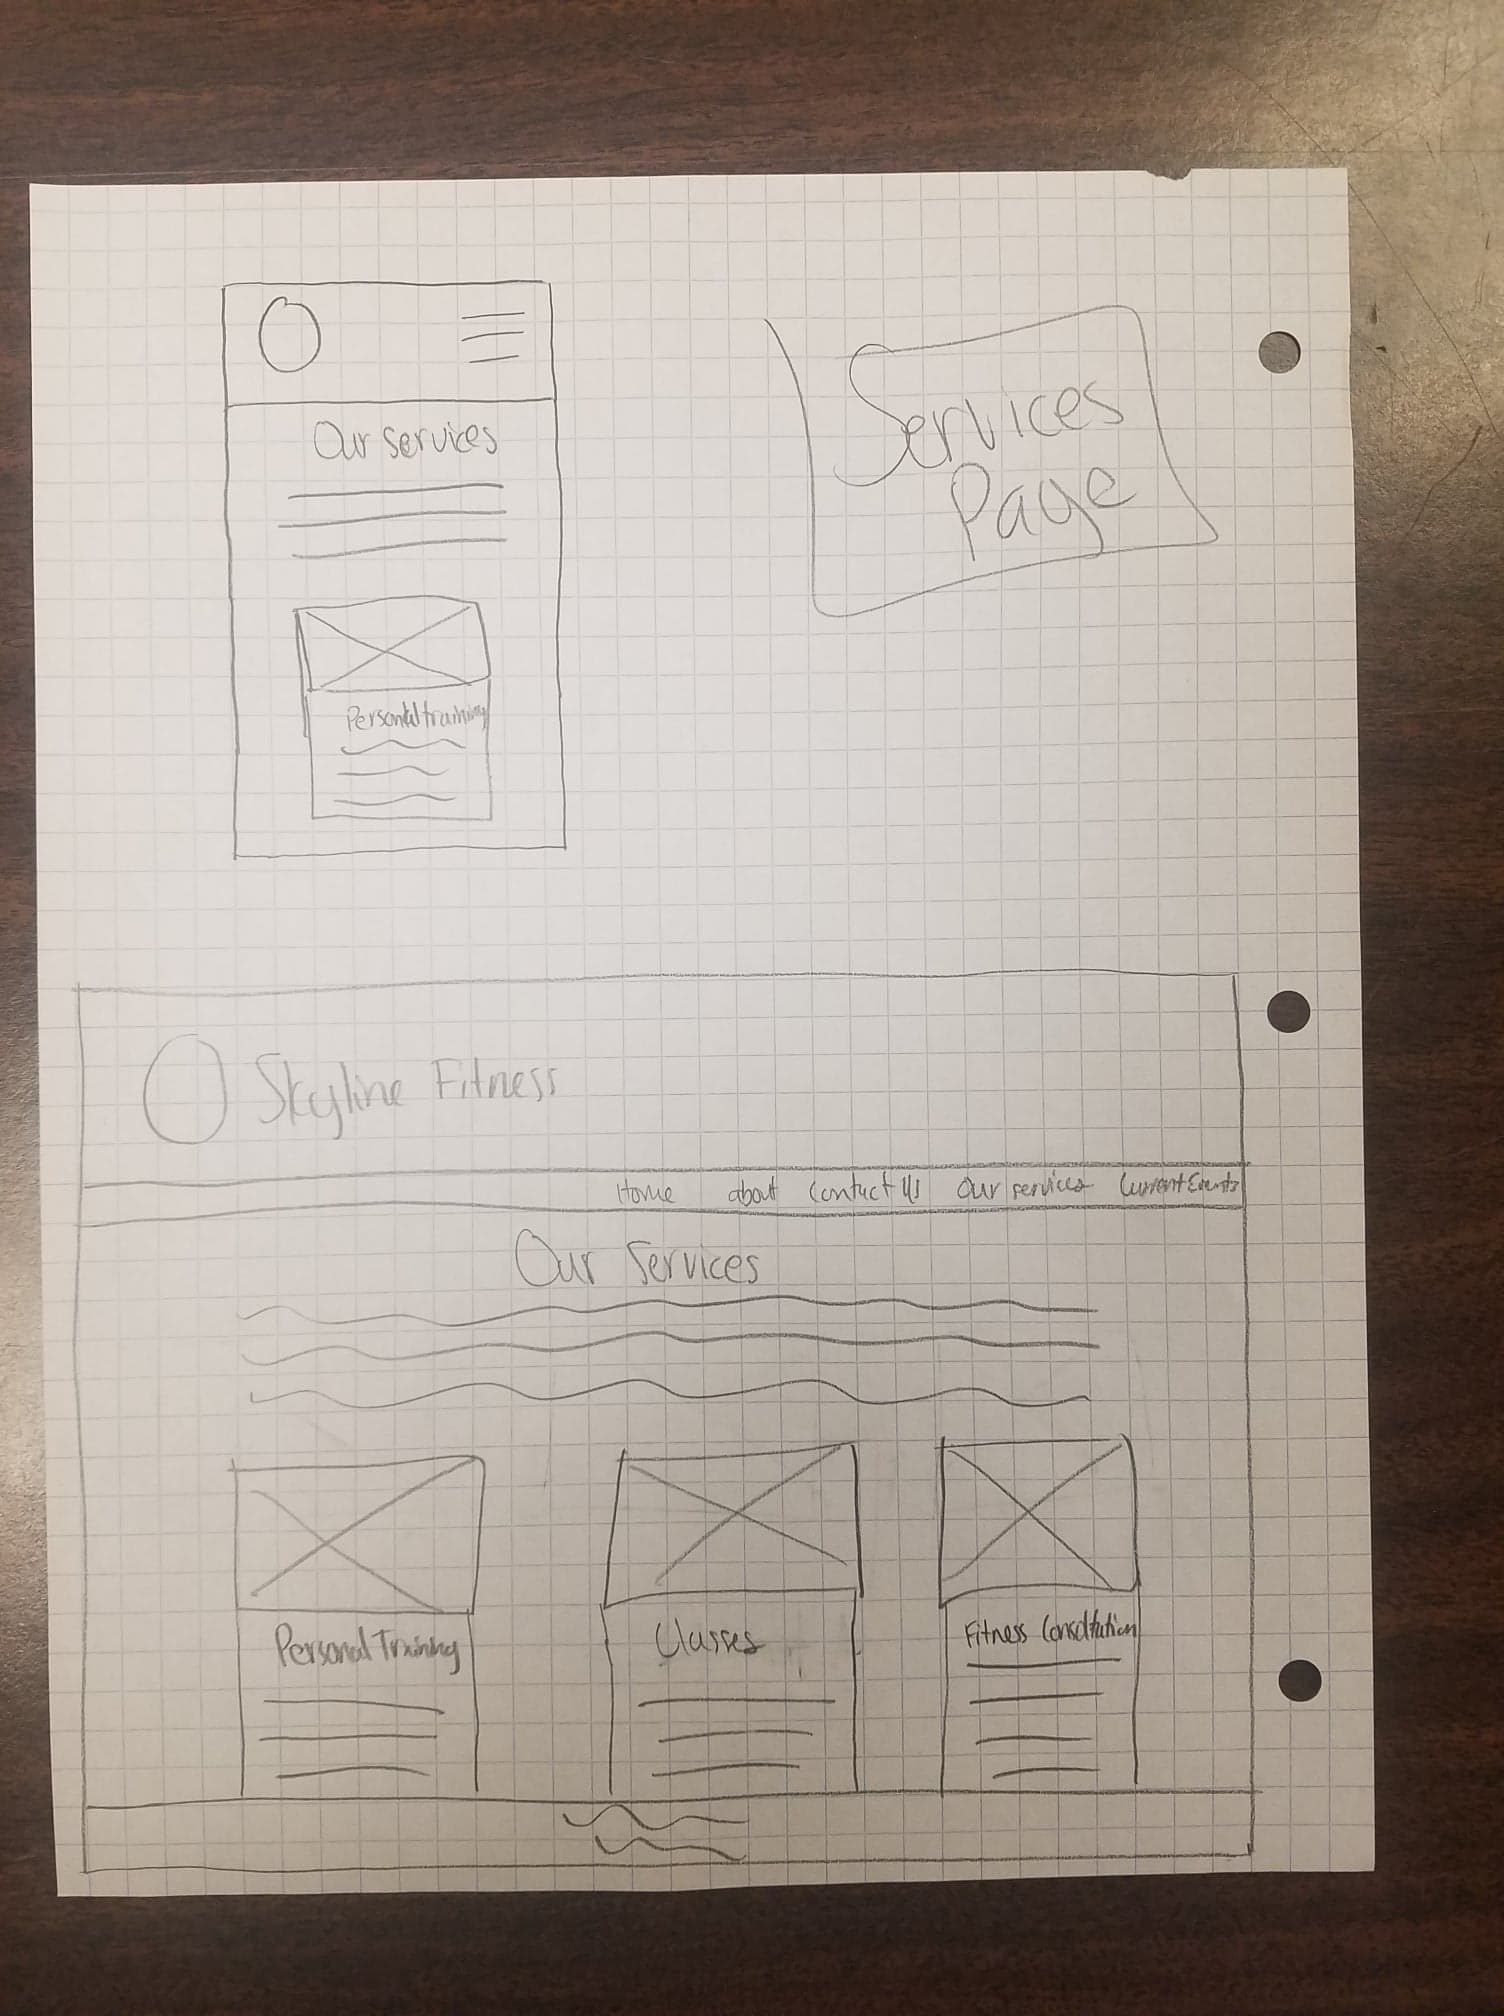 Our services
Services
Page
Personal training
Skyline Fitness
Home about Contact Us Our services Current Events
Our Services
Personal Training
Classes
Fitness Consoltation